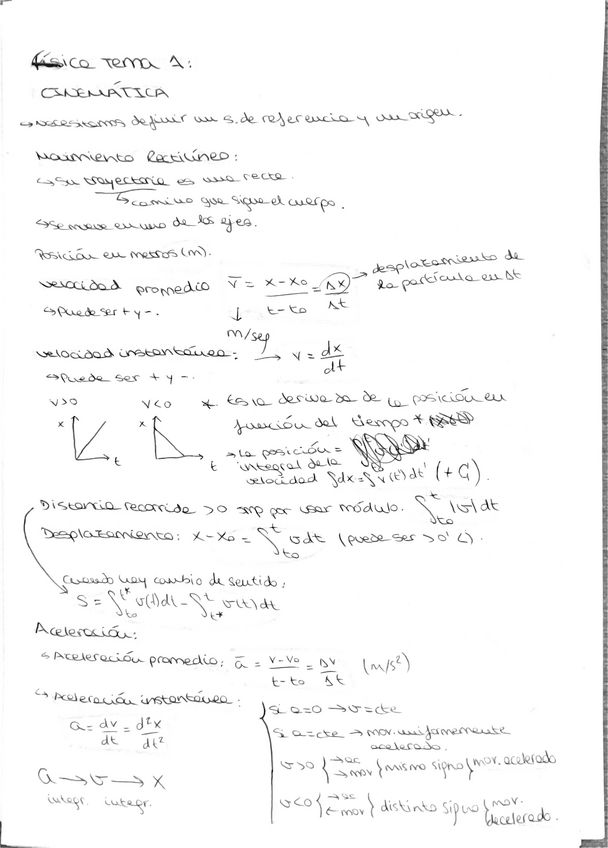 Física Tema 1:
CINEMÁTICA
↳ Necesitamos definir un s. de referencia y un origen.
Movimiento Rectilíneo:
↳ Su trayectoria es una recta.
↳ camino que sigue el cuerpo.
↳ Se mueve en uno de los ejes.
Posición en metros (m).
velocidad promedio v̅ = x-x₀/t-t₀ = Δx/Δt → desplazamiento de la partícula en Δt
↳ Puede ser + y -. ↓ m/seg
velocidad instantánea: → v = dx/dt
↳ Puede ser + y -.
v>0 v<0 * Es la derivada de la posición en
x t x t función del tiempo *
→ la posición =
integral de la
velocidad ∫dx = ∫v(t')dt' (+C).
Distancia recorrida >0 smp por usar módulo. ∫ₜ₀ᵗ |v| dt
Desplazamiento: x-x₀ = ∫ₜ₀ᵗ v dt (puede ser >0' <).
Cuando hay cambio de sentido:
S = ∫ₜ₀ᵗ* v(t)dt - ∫ₜ*ᵗ v(t)dt
Aceleración:
↳ Aceleración promedio: a̅ = v-v₀/t-t₀ = Δv/Δt (m/s²)
↳ Aceleración instantánea:
a = dv/dt = d²x/dt²
a → v → x
integr. integr.
si a=0 → v=cte
si a=cte → mov. uniformemente
acelerado.
v>0 { →ac →mov } mismo signo } mov. acelerado
v<0 { →ac ←mov } distinto signo } mov. decelerado.